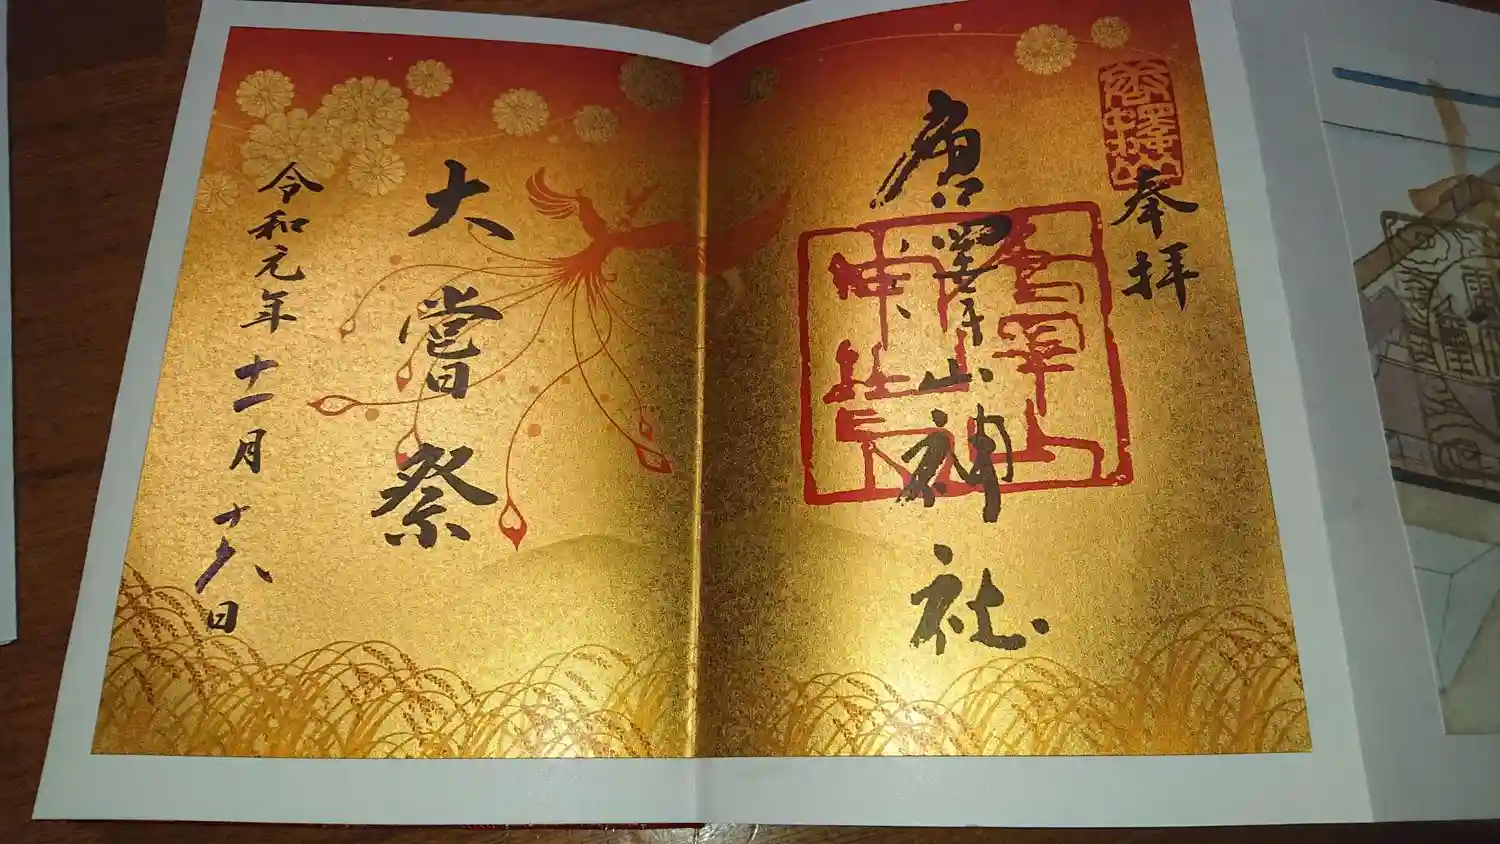 奉拝
唐澤山神社
大嘗祭
令和元年十一月十八日